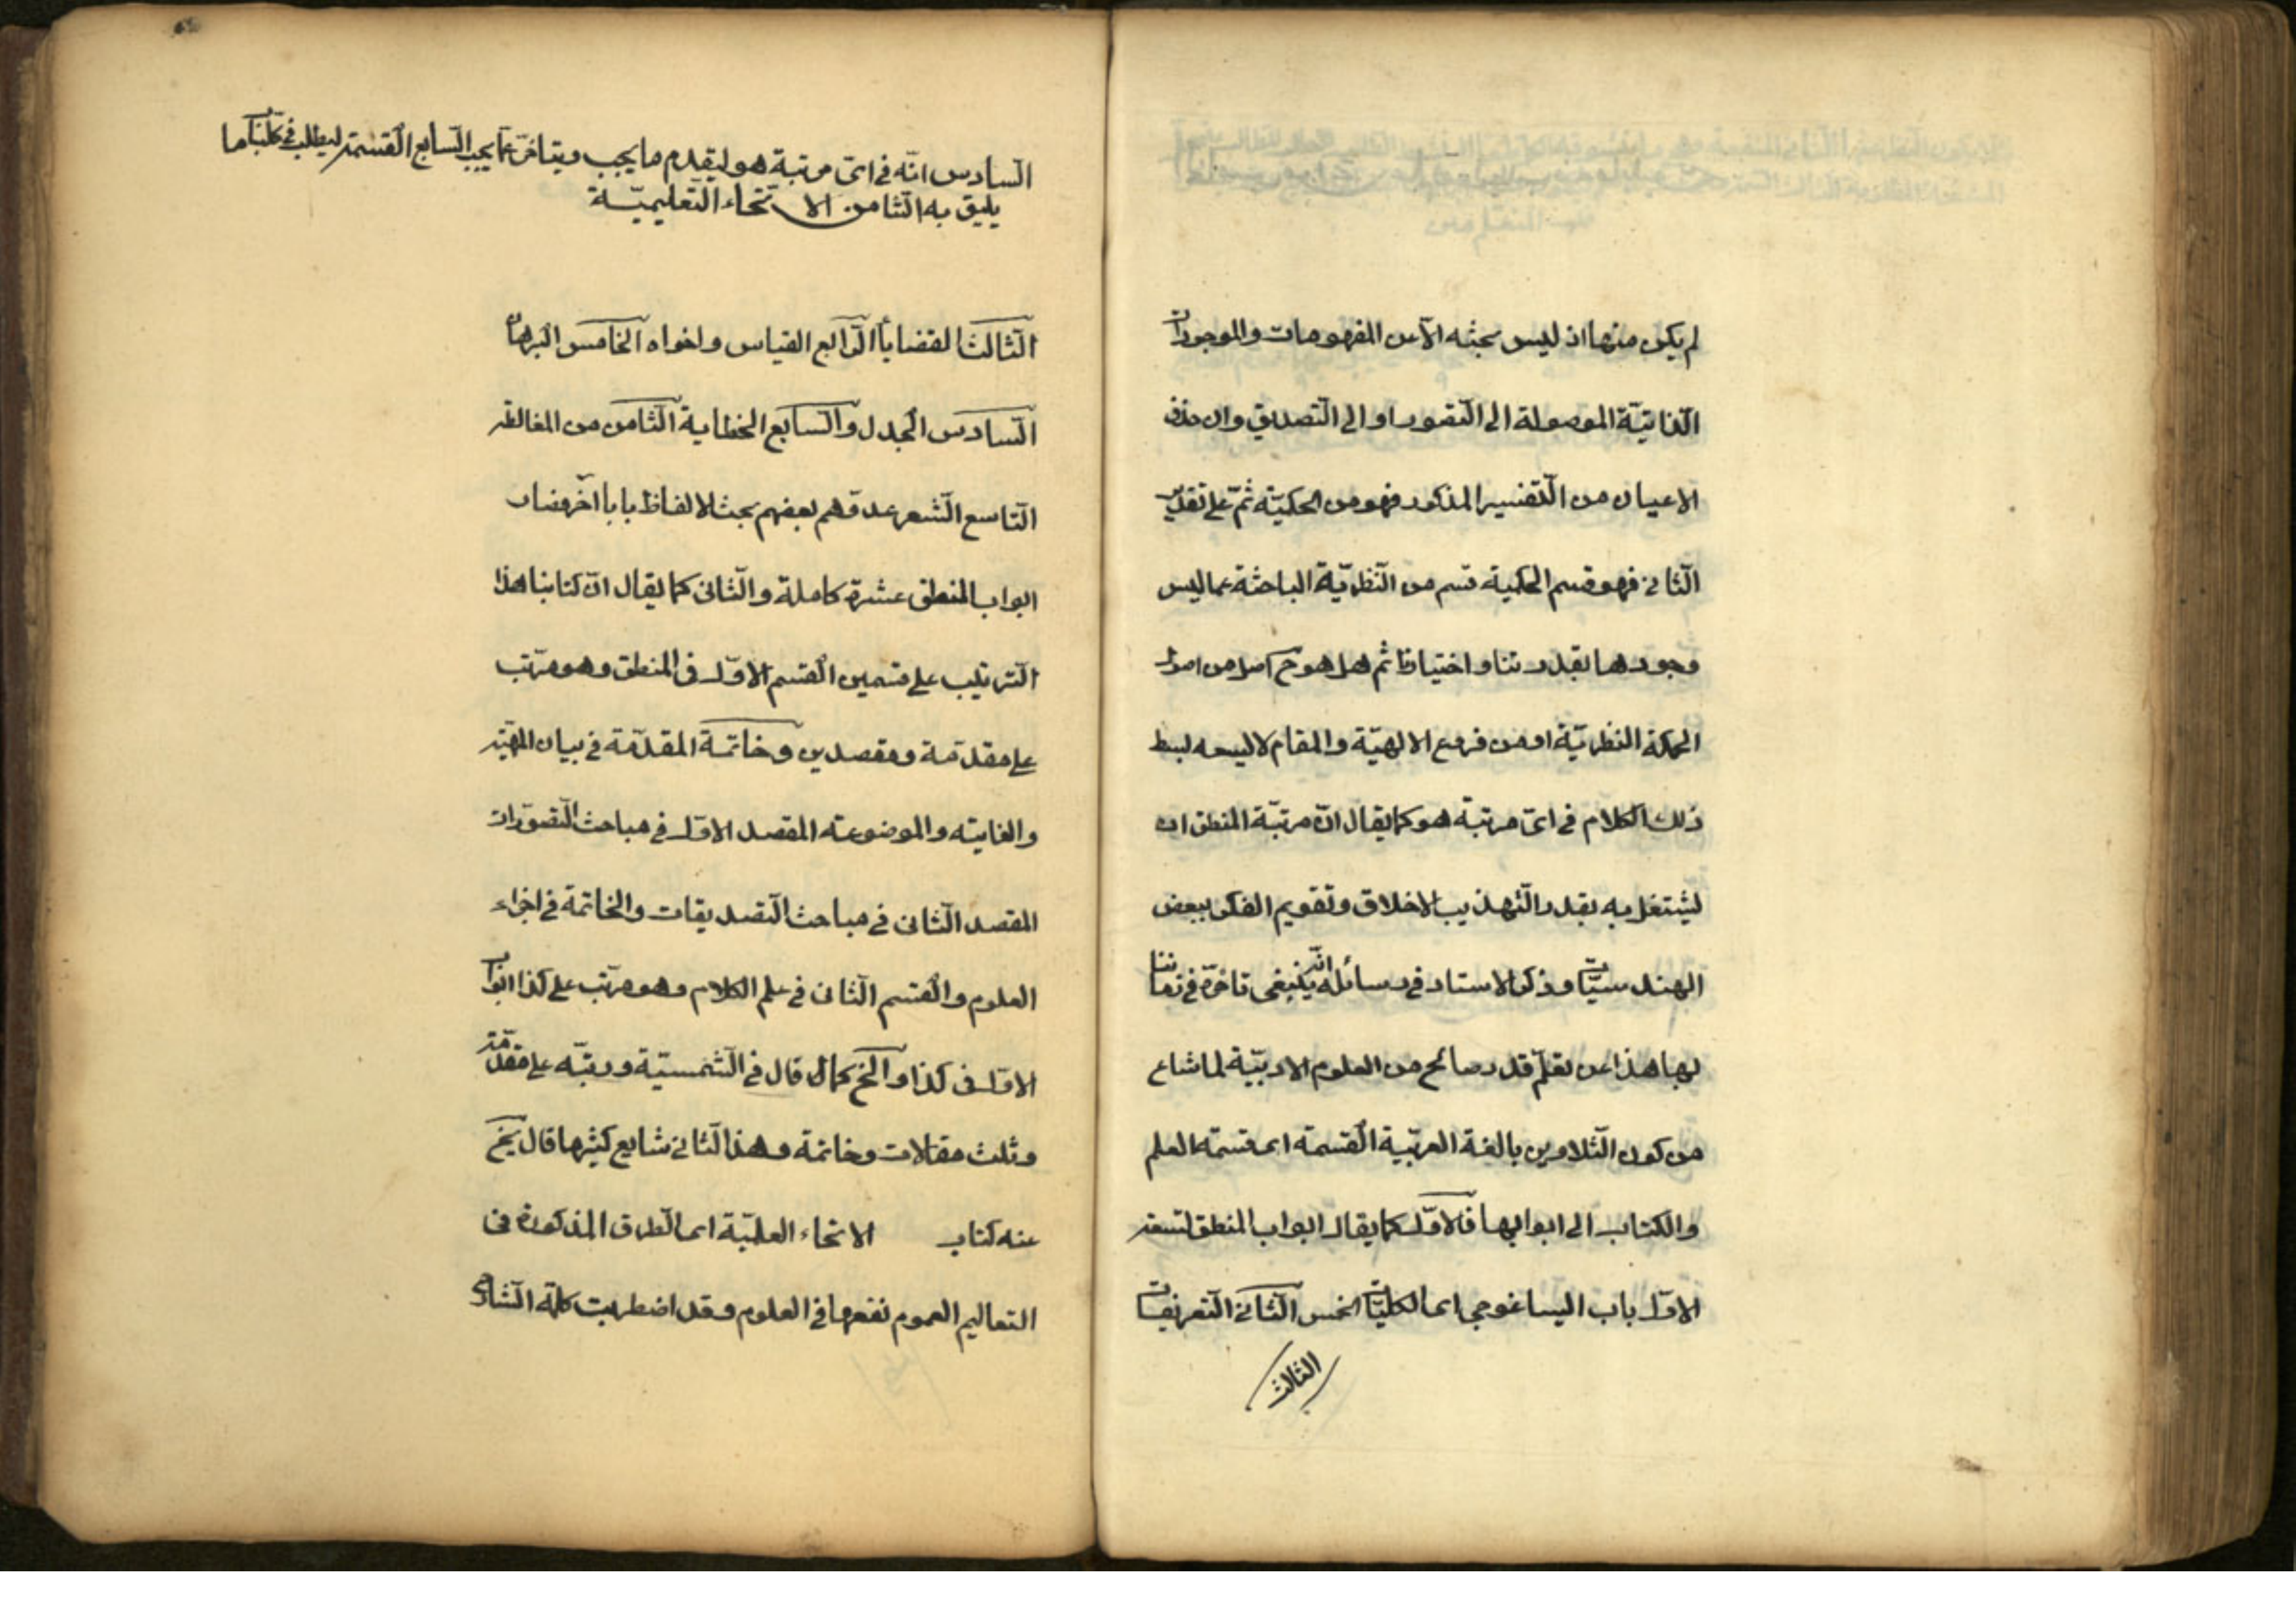 لم يكن منها اذ ليس بحثه الا عن المفهومات والموجودات
الذاتيّة الموصولة الى التّصور او الى التّصديق وان حذف
الاعيان من التّفسير المذكور فهو من الحكميّة ثمّ على تقدير
الثّاني فهو قسم الحكمية قسم من النّظريّة الباحثة عما ليس
وجودها بقدرتنا واختيارنا ثم هل هو ح اصل من اصول
الحكمة النظريّة او من فروع الالهيّة والمقام لا يسعه بسط
ذلك الكلام في اىّ مرتبة هو كما يقال انّ مرتبة المنطق ان
ليشتغل به بقدر التّهذيب الاخلاق وتقويم الفكر ببعض
الهندسيّات وذكر الاستاد في رسائله انّه ينبغى تاخرّه في زماننا
لهذا عن تعلّم قدر صالح من العلوم الادبيّة لما شاع
من كون التّدوين بالغة العربّية القسمة اى قسمة العلم
والكتاب الى ابوابها فالاوّل كما يقال ابواب المنطق تسعة
الاوّل باب اليساغوجى اى الكليّات الخمس الثّانى التّعريفات
الثالث
السّادس انّه في اىّ مرتبة هو ليقدم ما يجب ويتاخّر عمّا يجب السّابع القسمة ليطلب في كلّ باب ما
يليق به الثّامن الانحاء التّعليميّة
الثّالث القضايا الرّابع القياس واخواه الخامس البرهان
السّادس الجدل والسّابع الخطابة الثّامن من المغالطة
التّاسع الشّعر عدّهم بعضهم بحث الالفاظ بابا اخر فصار
ابواب المنطق عشرة كاملة والثّانى كما يقال انّ كتابنا هذا
التّرتيب على قسمين القسم الاوّل فى المنطق وهو مرّتب
على مقدّمة ومقصدين وخاتمة المقدّمة في بيان المهيّة
والغايته والموضوعته المقصد الاوّل في مباحث التّصوّرات
المقصد الثّانى في مباحث التّصديقات والخاتمة في اجزاء
العلوم والقسم الثّانى في علم الكلام وهو مرّتب على كذا ابواب
الاوّل فى كذا والخ كما قال في الشّمسيّة ورتبّه على مقدّمة
وثلث مقالات وخاتمة وهذا الثّانى شايع كثيرها قال يخ
عنه كتاب الانحاء العلميّة اى الطّرق المذكورة فى
التعاليم العموم نفعها في العلوم وقد اضطربت كلمة الشّارح